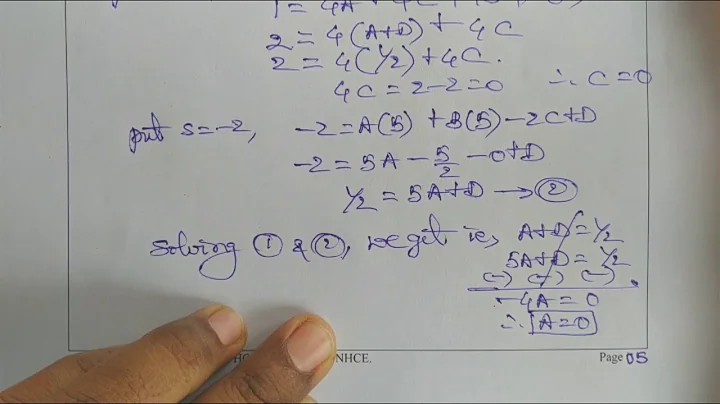 2 = 4(A+D) + 4C
2 = 4(1/2) + 4C.
4C = 2-2 = 0 ∴ C = 0
put s = -2, -2 = A(5) + B(5) - 2C + D
-2 = 5A - 5/2 - 0 + D
1/2 = 5A + D → ②
Solving ① & ②, we get ie, A+D = 1/2
5A+D = 1/2
(-) (-) (-)
-4A = 0
∴ A = 0
NHCE. Page 05